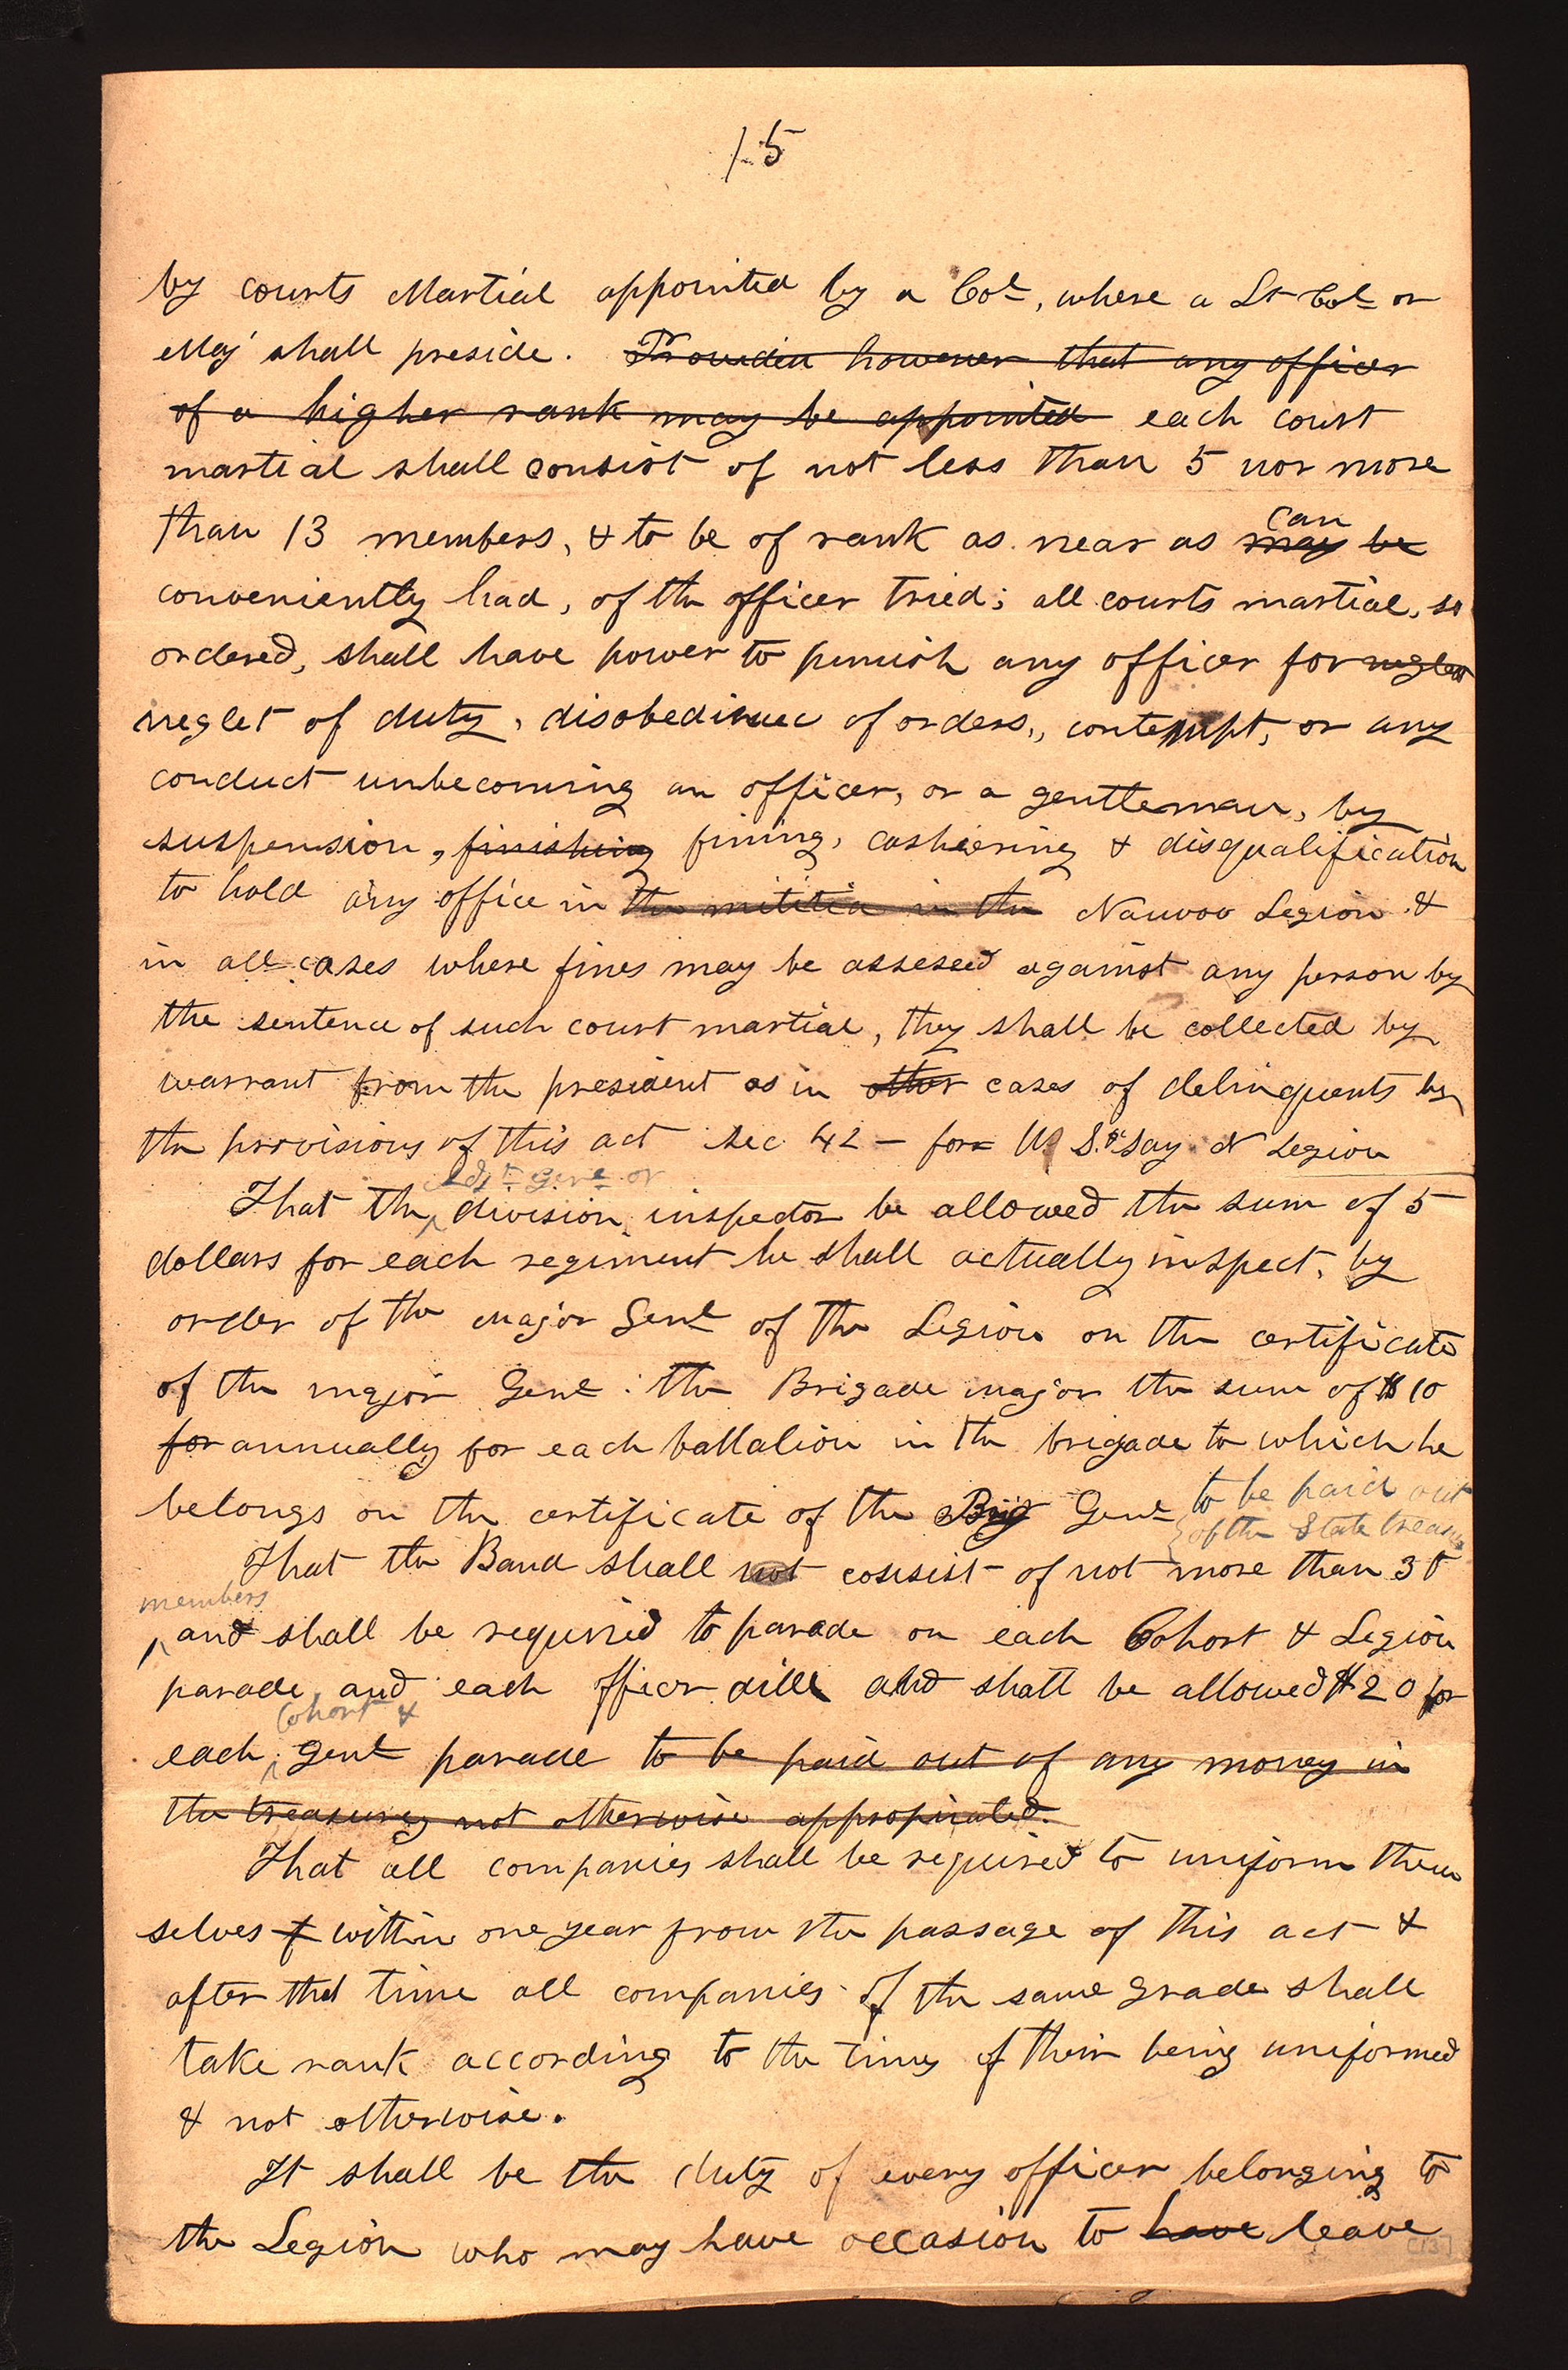 15
by courts Martial appointed by a Col, where a Lt Col or
Maj shall preside. Provided however that any officer
of a higher rank may be appointed each court
martial shall consist of not less than 5 nor more
can
than 13 members, & to be of rank as near as may be
conveniently had, of the officer tried; all courts martial, so
ordered, shall have power to punish any officer for neglect
neglet of duty, disobedience of orders, contempt, or any
conduct unbecoming an officer, or a gentleman, by
suspension, finishing fining, cashiering & disqualification
to hold any office in the militia in the Nauvoo Legion &
in all cases where fines may be assesed against any person by
the sentence of such court martial, they shall be collected by
warrant from the president as in other cases of delinquents by
the provisions of this act sec 42 – for say N Legion
Adjt Genl or
That the division inspector be allowed the sum of 5
dollars for each regiment he shall actually inspect, by
order of the major Genl of the Legion on the certificate
of the major Genl : the Brigade major the sum of $10
for annually for each battalion in the brigade to which he
belongs on the certificate of the Brig Genl to be paid out
of the State treasury
That the Band shall not consist of not more than 30
members
and shall be required to parade on each Cohort & Legion
parade, and each officer dill and shall be allowed $20 for
Cohort &
each Genl parade to be paid out of any money in
the treasury not otherwise appropriated.
That all companies shall be required to uniform them
selves within one year from the passage of this act &
after that time all companies of the same grade shall
take rank according to the time of their being uniformed
& not otherwise.
It shall be the duty of every officer belonging to
the Legion who may have occasion to have leave
[13]